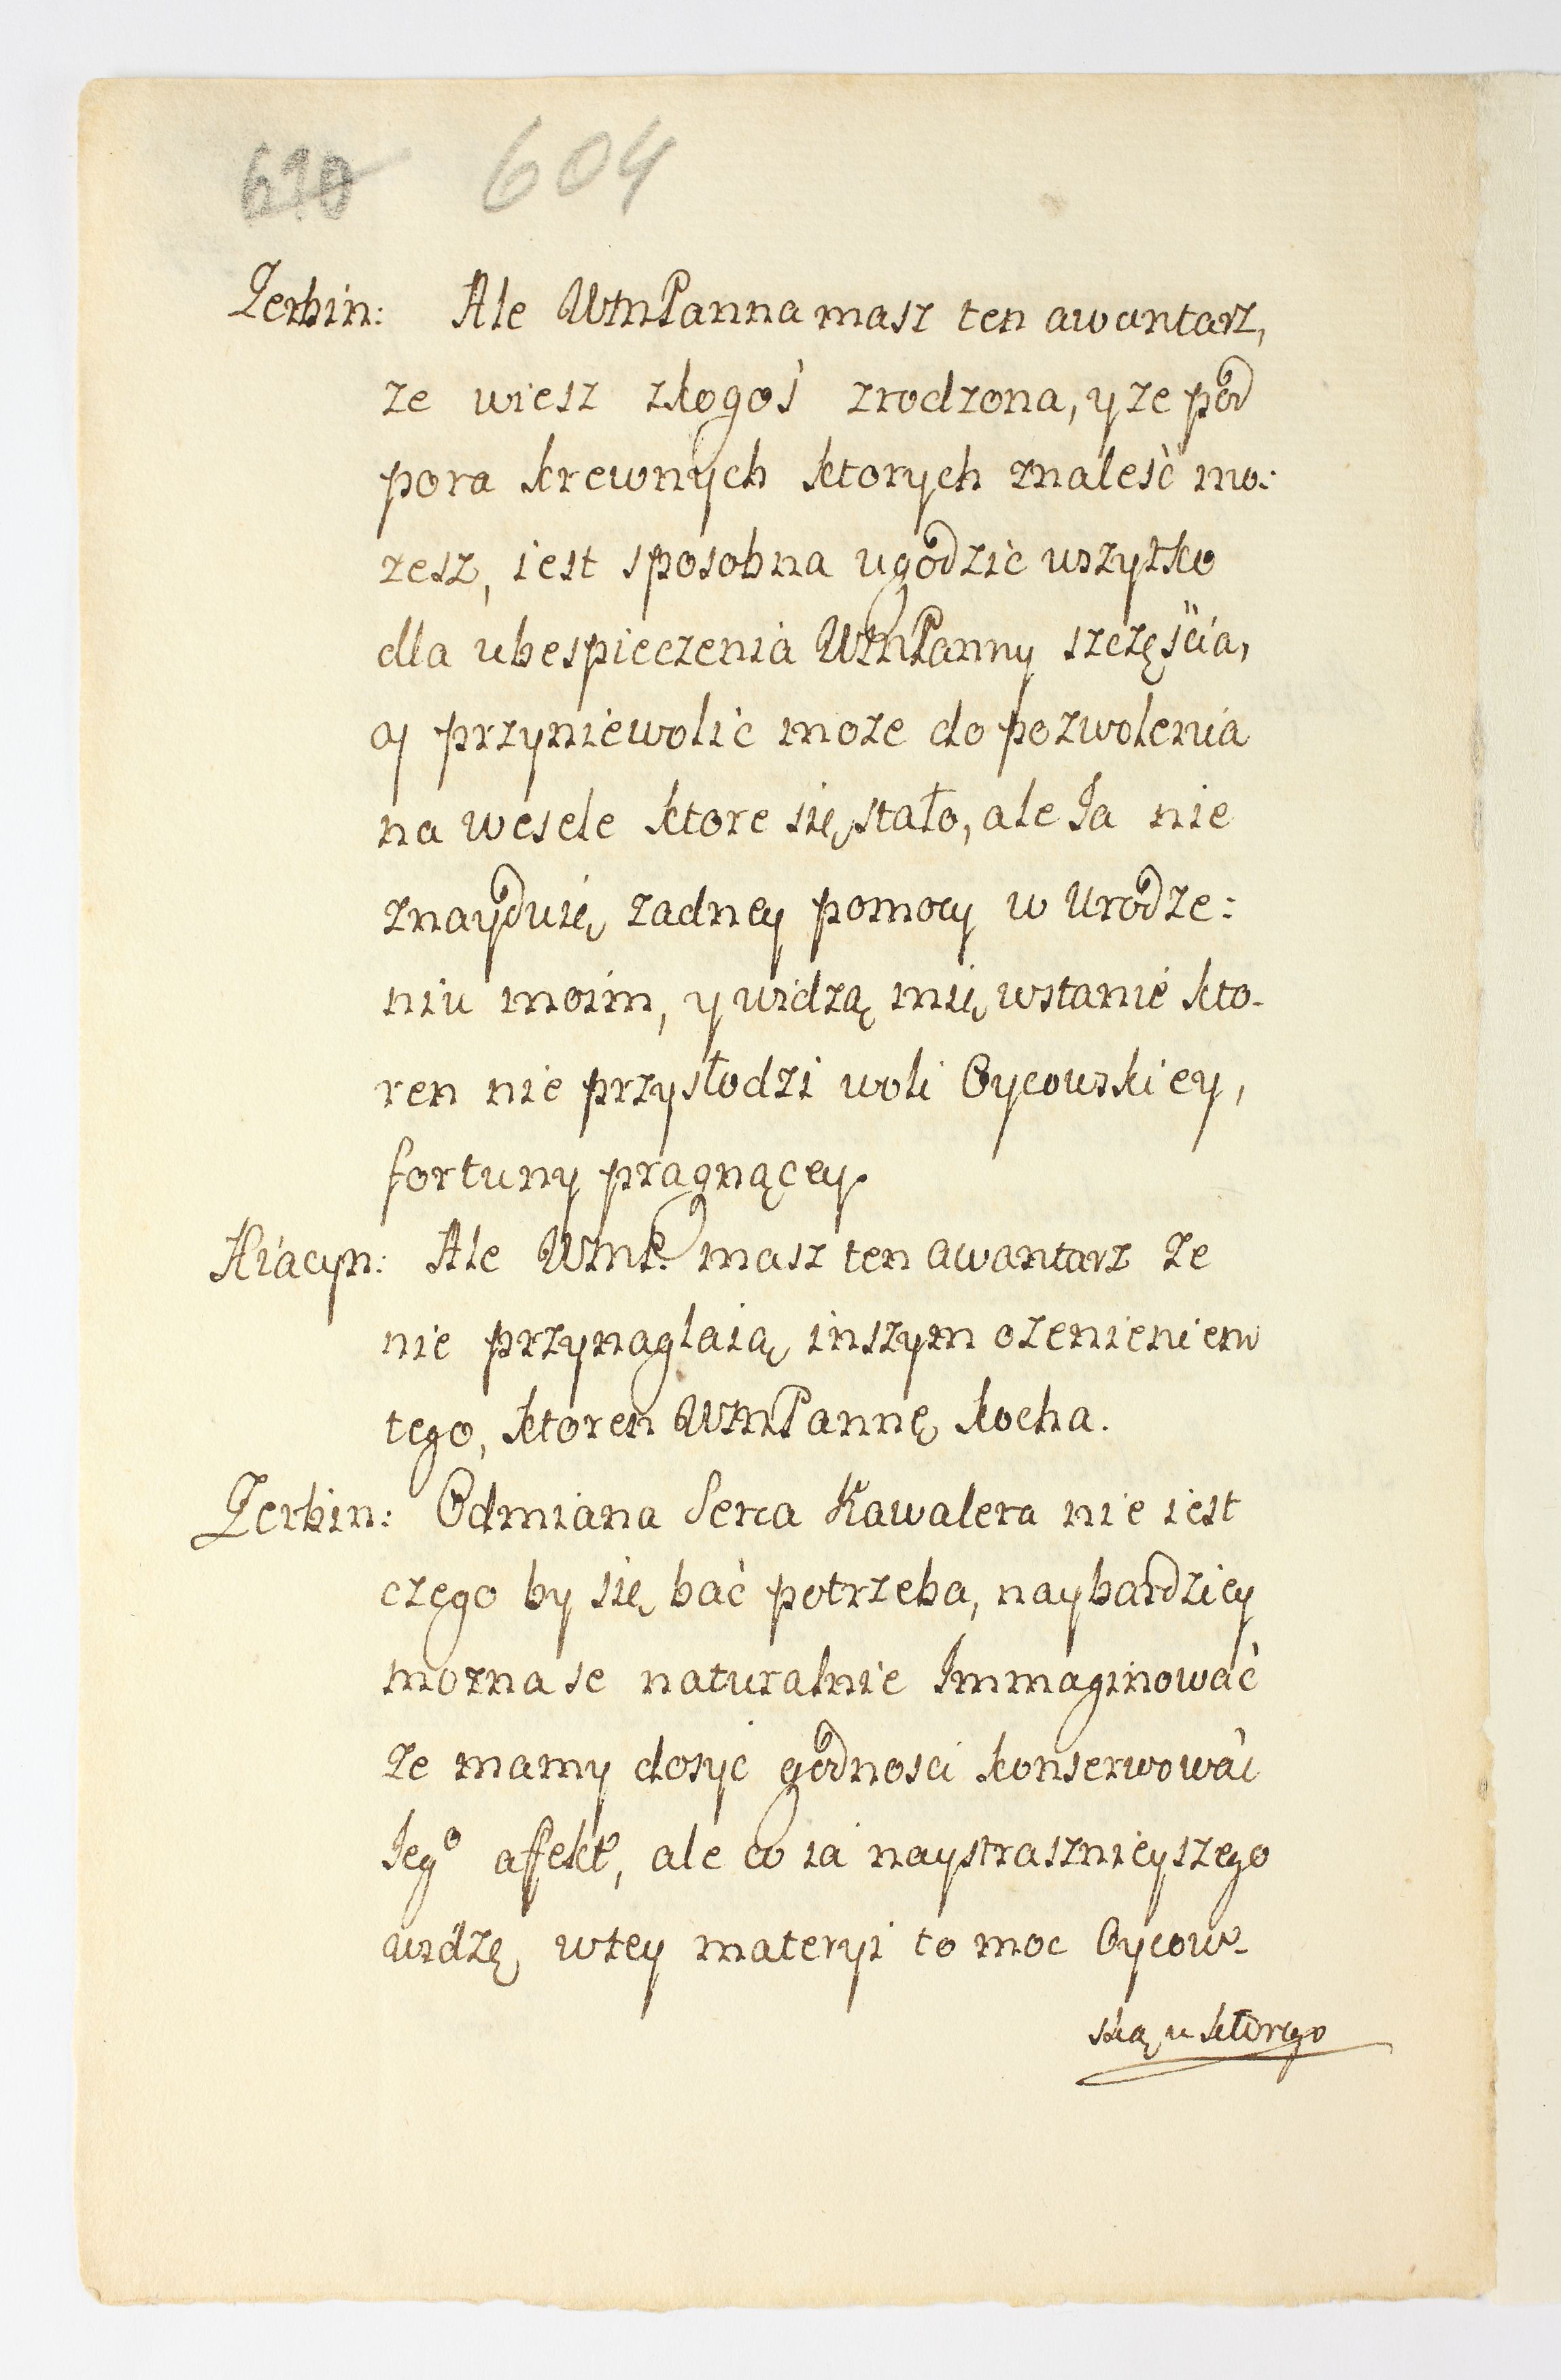 610 604
Zerbin: Ale WmPanna masz ten awantarz,
ze wiesz zkogoś zrodzona, y ze pod
pora krewnych ktorych znaleść mo:
zesz, iest sposobna ugodzić wszytko
dla ubespieczenia WmPanny szczęścia,
y przyniewolić moze do pozwolenia
na wesele ktore się stało, ale Ja nie
znayduię zadney pomocy w Urodze:
niu moim, y widzą mię wstanie kto-
ren nie przysłodzi woli Oycowskiey,
fortuny pragnącey.
Hiacyn: Ale WmP. masz ten awantarz ze
nie przynaglaią inszym ozenieniem
tego, ktoren WmPannę kocha.
Zerbin: Odmiana Serca Kawalera nie iest
czego by się bać potrzeba, naybardziey
mozna se naturalnie Immaginować
ze mamy dosyć godnosci konserwować
Jego affekt, ale co ia naystrasznieyszego
widzę wtey materyi to moc Oycow-
ską u ktorego